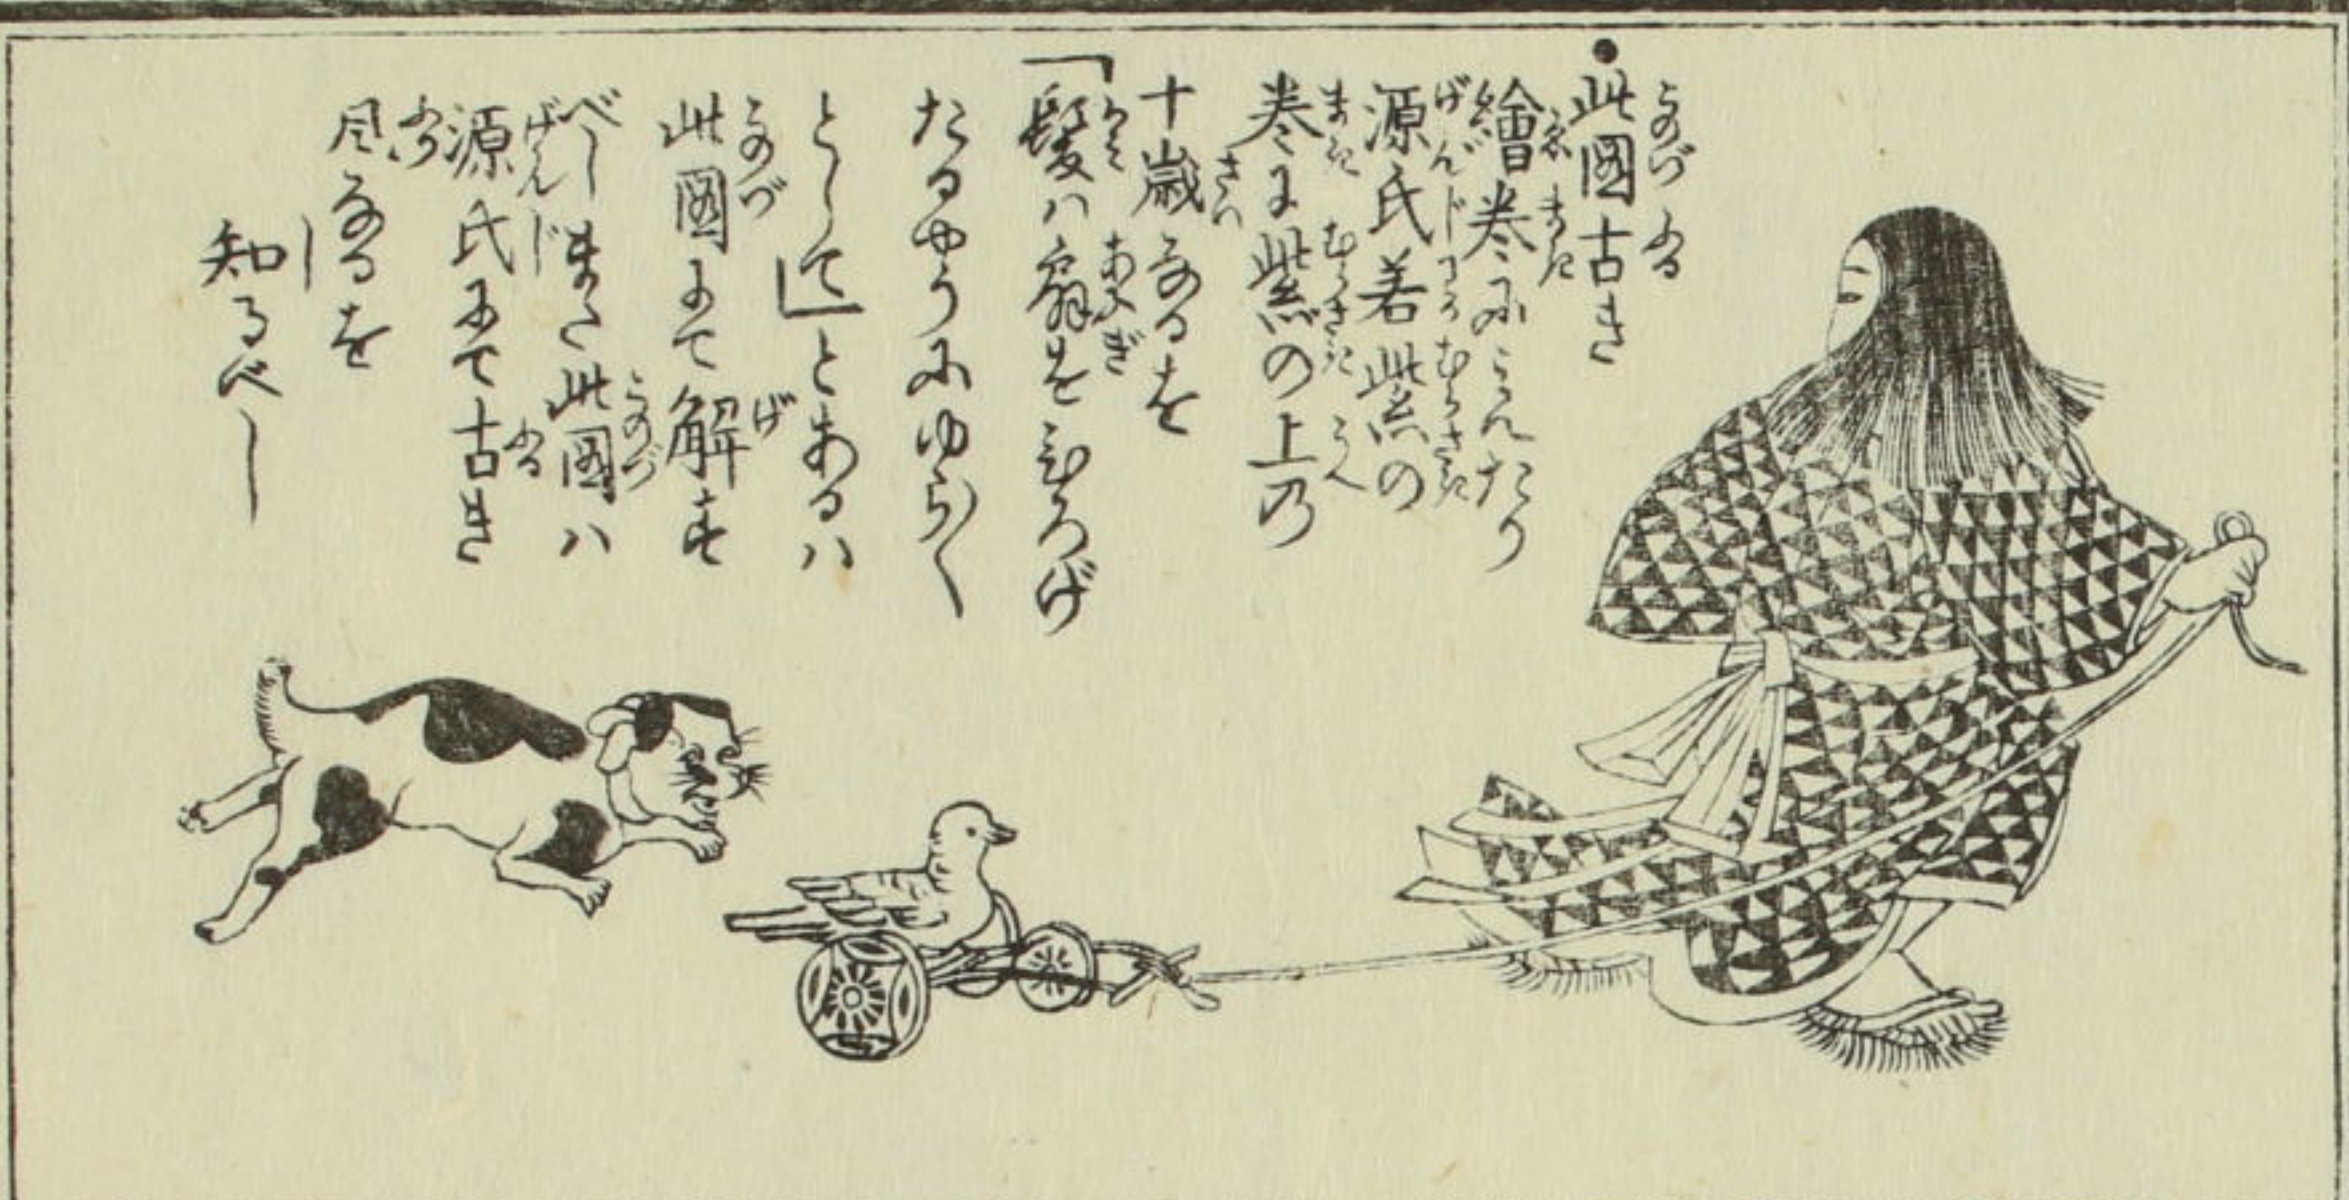 ●此圖古き
繪巻にみえたり
源氏若紫の
巻に紫の上の
十歳なるを
「髪ハ扇をひろげ
たるやうにゆら〱
として」とあるハ
此圖にて解す
べしまた此圖ハ
源氏にて古き
風なるを
知るべし